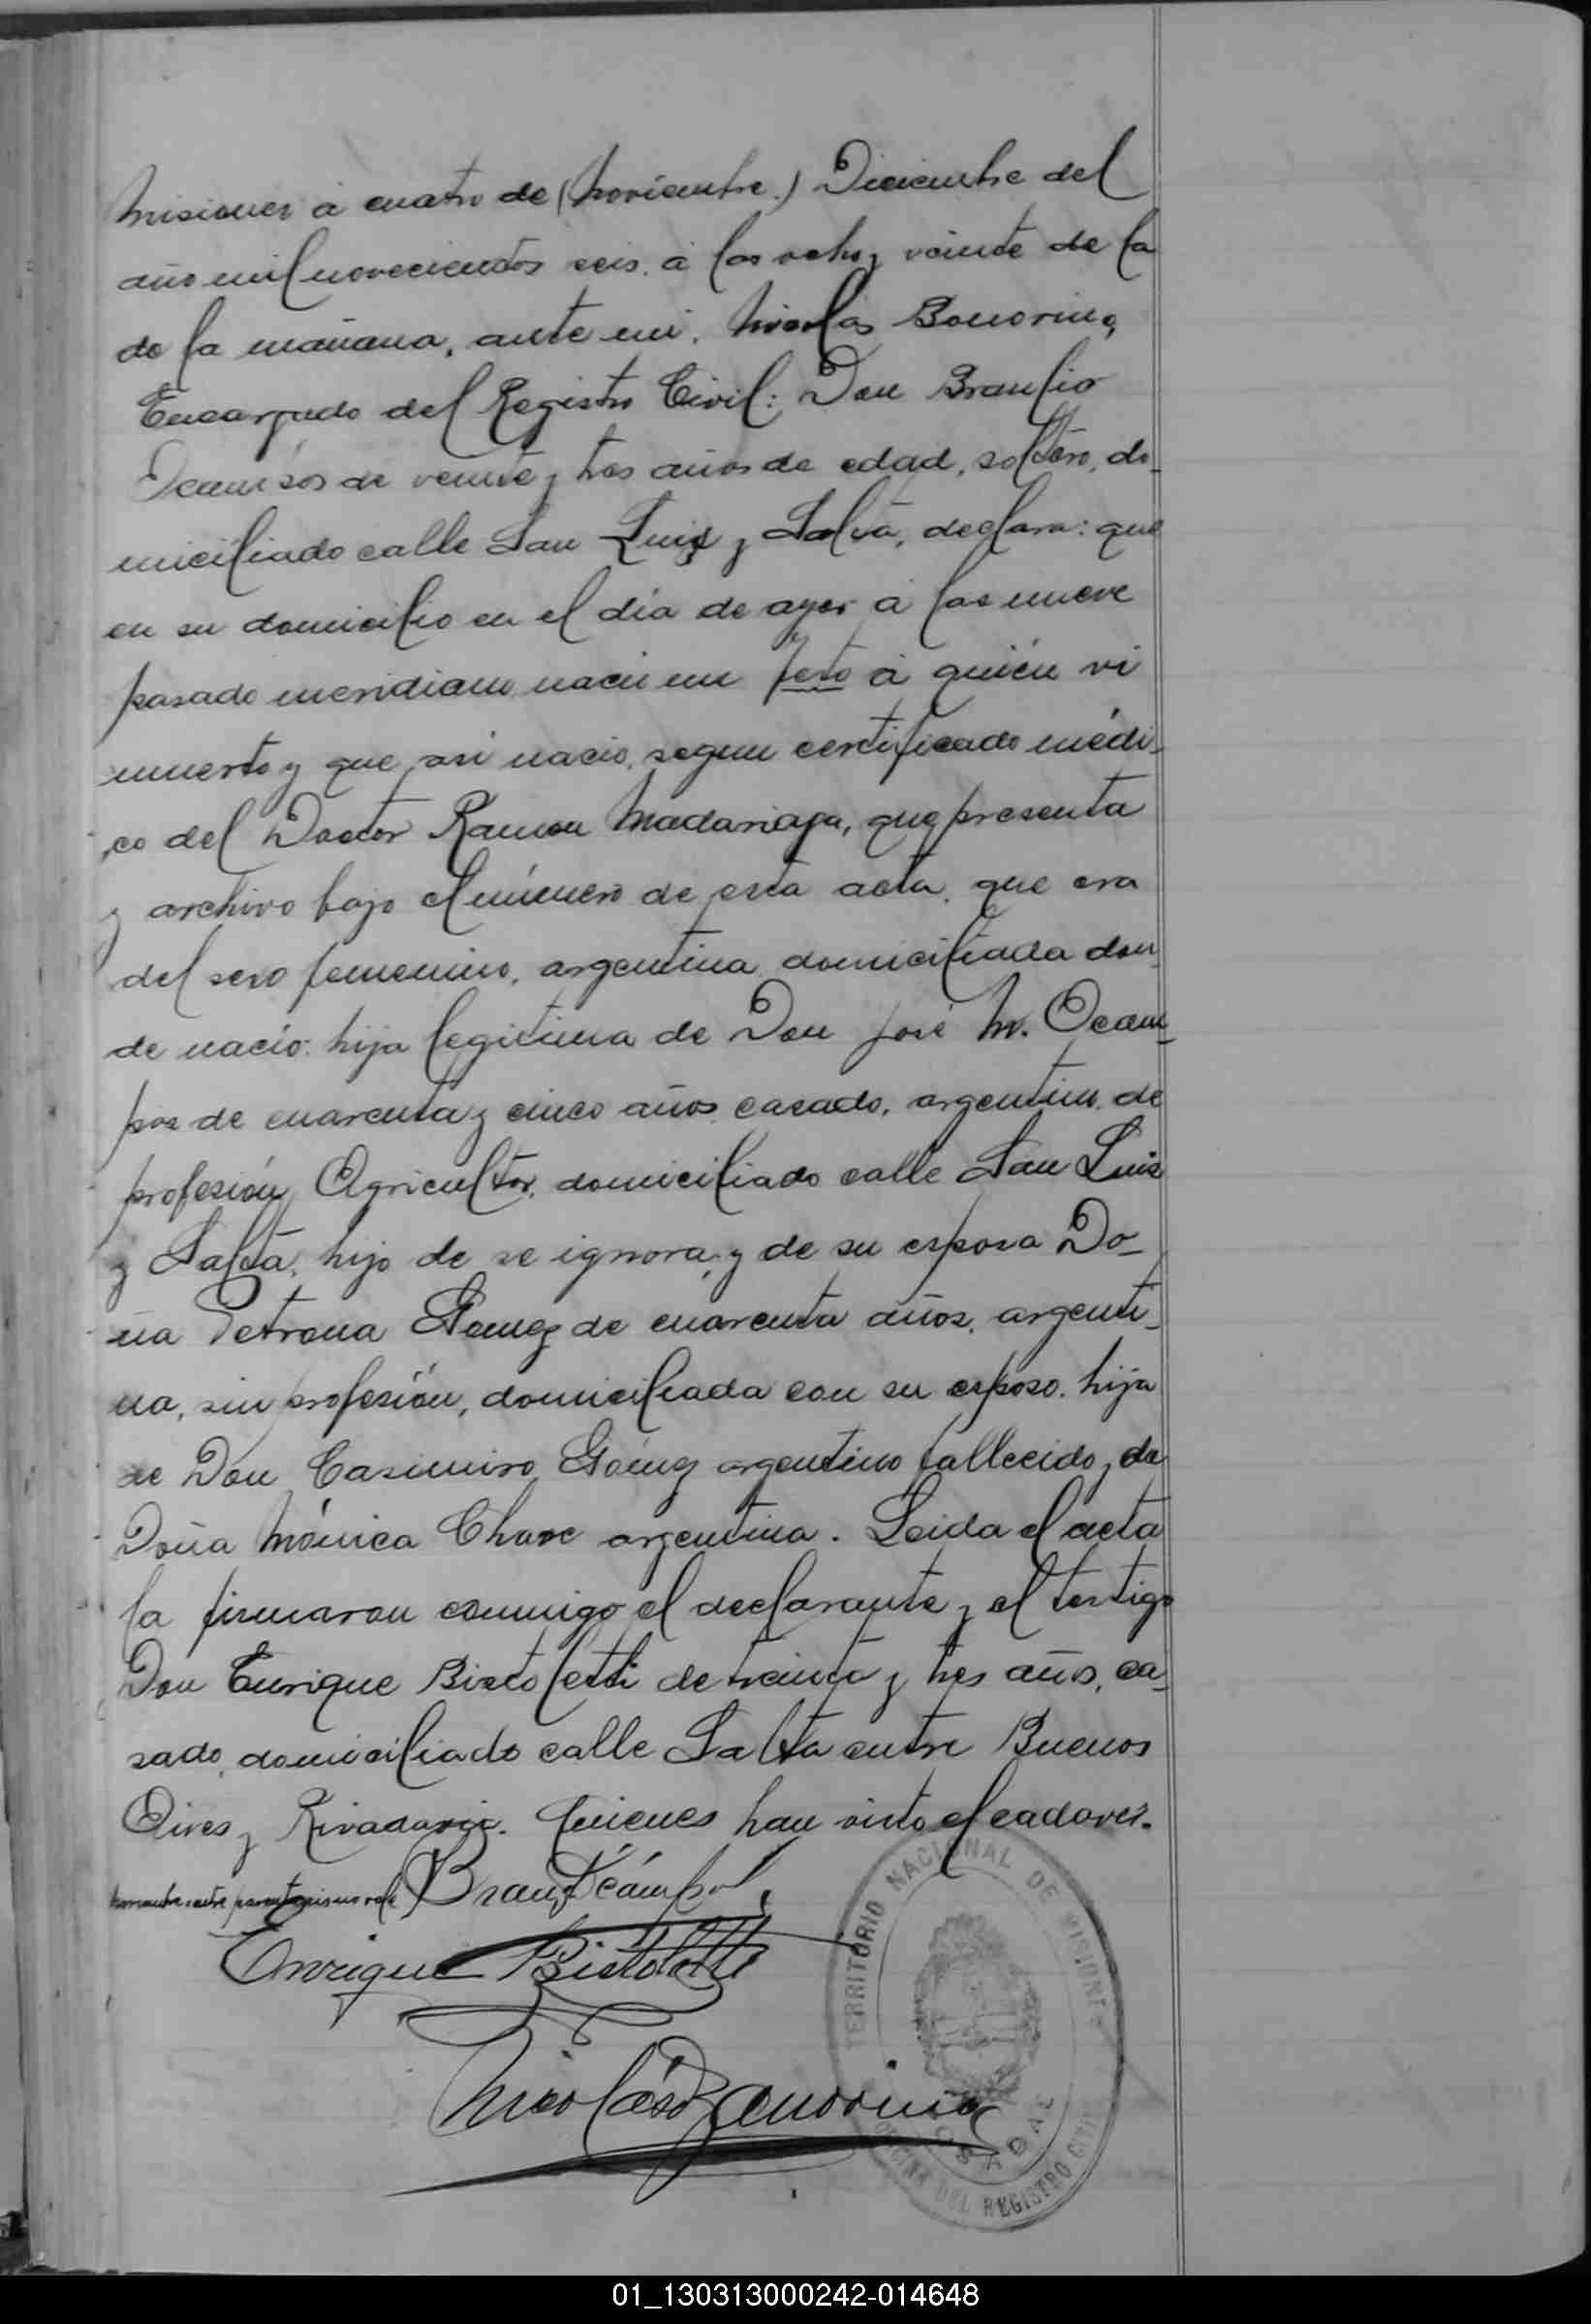 Misiones á cuatro de (Noviembre.) Diciembre del
año mil novecientos seis. á las ocho y veinte de la
de la mañana, ante mi, Nicolás Bonorino,
Encargado del Registro Civil: Don Braulio
Ocampos de veinte y tres años de edad, soltero, do-
miciliado calle San Luis y Salta, declara: que
en su domicilio en el dia de ayer á las nueve
pasado meridiano nació un feto á quién vi
muerto y que asi nació, segun certificado médi-
co del Doctor Ramon Madariaga, que presenta
y archivo bajo el número de esta acta, que era
del sexo femenino, argentina domiciliada don-
de nació: hija legitima de Don José M. Ocam-
pos de cuarenta y cinco años casado, argentino, de
profesión Agricultor, domiciliado calle San Luis
y Salta, hijo de se ignora, y de su esposa Do-
ña Petrona Gomez de cuarenta años, argenti-
na, sin profesión, domiciliada con su esposo. hija
de Don Casimiro Gómez argentino fallecido y de
Doña Mónica argentina. Leida el acta
la firmaron conmigo el declarante y el testigo
Don Enrique Bistoletti de treinta y tres años, ca-
sado, domiciliado calle Salta entre Buenos
Aires y Rivadavia. Quienes han visto el cadaver.
Noviembre entre parentesis no vale Brau Ocámpos
Enrique Bistoletti
Nicolás Bonorino
TERRITORIO NACIONAL DE MISIONES
OFICINA DEL REGISTRO CIVIL
POSADAS
01_130313000242-014648